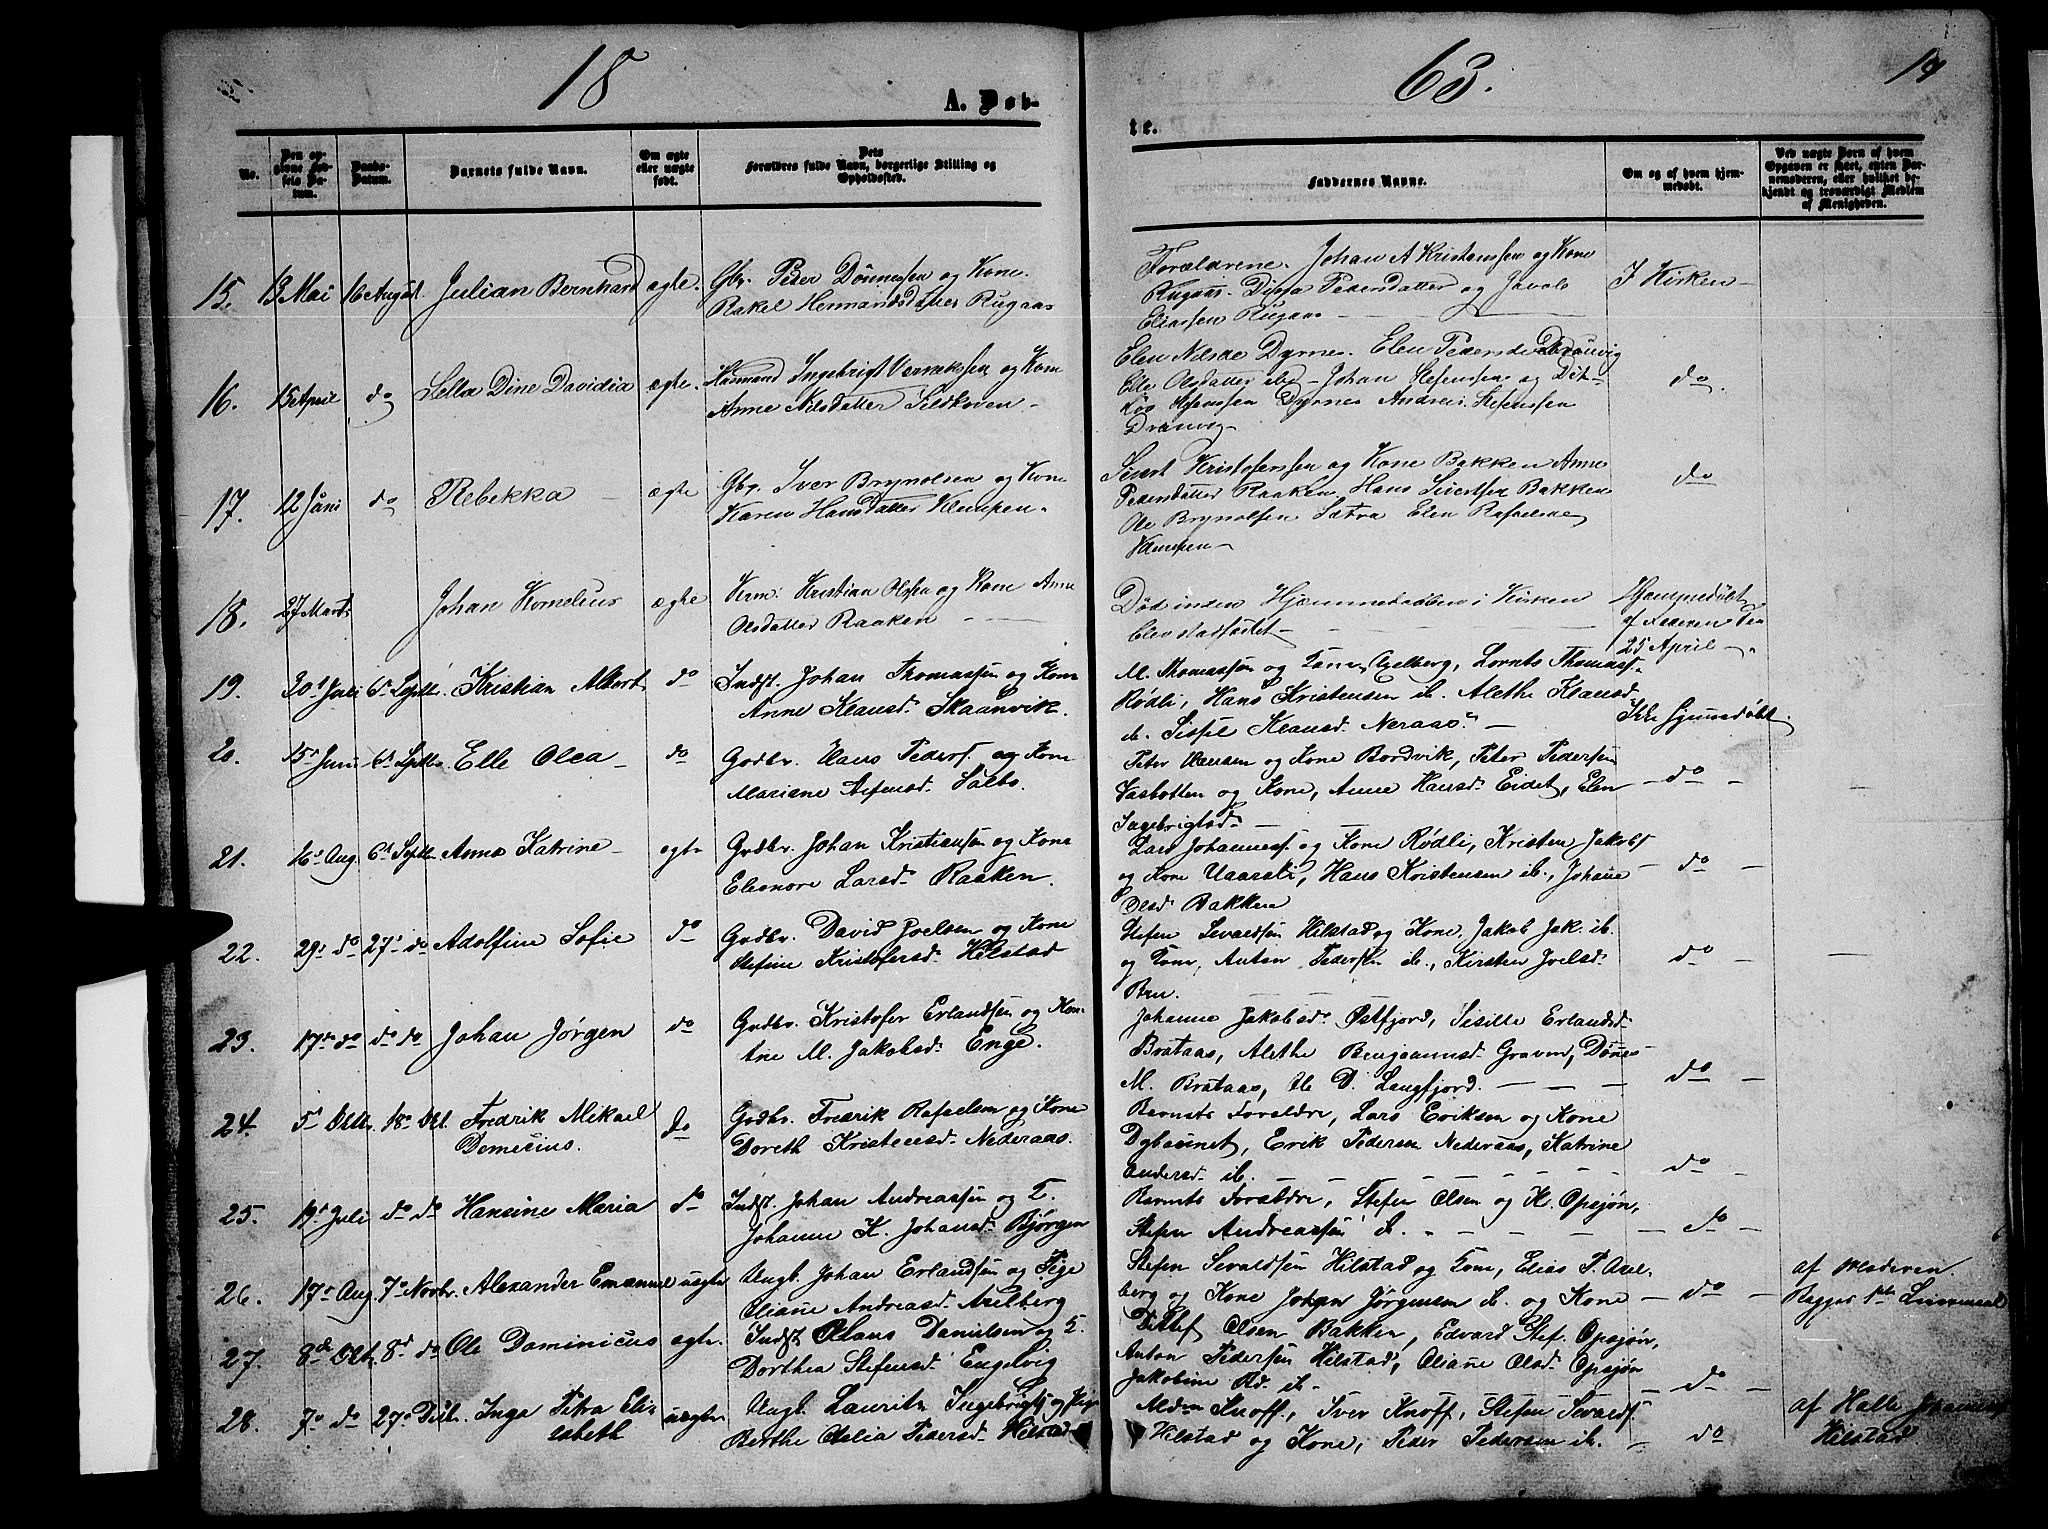 18
63.
19
A. Døb-
te.
No.
Den opgivne Fødsels Datum.
Daabs-Datum.
Barnets fulde Navn.
Om ægte eller uægte født.
Dets Forældres fulde Navn, borgerlige Stilling og Opholdssted.
Faddernes Navne.
Om og af hvem hjemmedøbt.
Ved uægte Børn af hvem Opgaven er skeet, enten Barnemoderen, eller hvilket bekjendt og troværdigt Medlem af Menigheden.
15. 13 Mai 16 August. Julian Bernhard ægte. Gbr. Peder Dønnessen og Kone.
Rakel HermandsDatter Rugaas
Forældrene. Johan A Kristenssen og Kone
Rugaas. Dina Pedersdatter og Jakob
Eliassen Rugaas
I Kirken
16. 15 April do Sella Dine Davidia ægte. Huusmand Ingebrigt og Kone
Anne Nilsdatter Sildhoven
Elen Nilsde Dyrnes. Elen Pedersde Dranvig
Elle Olsdatter ibd - Johan Stefensen og Dit-
løv Stefenssen Dyrnes Andreas Stefenssen
Dranvig
do.
17. 12 Juni do Rebekka ægte Gbr. Iver Brynolsen og Kone
Karen Hansdatter Kæmpen.
Sivert Kristofersen og Kone Bakken Anne
Pedersdatter Raaken, Hans Sivertsen Bakken
Ole Brynolfsen Sætra Elen Rafaelsde
Kæmpen
do
18. 27 Marts Johan Kornelius ægte Kristian Olssen og Kone Anne
Olsdatter Raaken
Død inden Hjemmedaaben i Kirken
blev stadfæstet
Hjemmedøbt
af Faderen den
25 April
19. 30t Juli 6t Septbr. Kristian Albert do Indst. Johan Thomassen og Kone
Anne Klausd. Skaanvik.
M. Thomassøn og Kone Axelberg, Lornts Thomass.
Rødli, Hans Kristensen ib. Alethe Klausd.
ib. Sissel Klausd. Neraas.
Ikke hjemmedøbt.
20. 15t Juni 6t Septbr. Elle Olea do Grdbr. Claus Peders. og Kone
Mariane Salbo.
Peter Hansen og Kone Bordvik, Peter Pedersen
Vasbotten og Kone, Anne Hansd. Eidet, Elen
Ingebrigtsd.
do
21. 16' Aug. 6t Septbr. Anne Katrine ægte Grdbr. Johan Kristiansen og Kone
Eleonore Larsd. Raaken.
Lars Johanness. og Kone Rødli, Kristen Jakobs.
og Kone Vaarsli, Hans Kristensen ib., Johane
Olsd. Bakken
do
22. 29' do 27' do Adolfine Sofie do Grdbr. David Joelsen og Kone
Stefine Kristofersd. Hilstad
Stefen Sevaldsen Hilstad og Kone, Jakob Jak. ib.
og Kone, Anton Pedersen ib., Kirsten Joelsd.
Bru.
do
23. 17' do do do Johan Jørgen do Grdbr. Kristofer Erlandsen og Kone
Ane M. Jakobsd. Enge.
Johanne Jakobsd. Østfjord, Sisille Erlandsd.
Brataas, Alethe Benjaminsd. Graven, Dønes
M. Brataas, Ole D. Langfjord.
do
24. 5' Oktbr. 18' Okt. Fredrik Mikael
Domecius. do Grdbr. Fredrik Rafaelsen og Kone
Doreth Kristensd. Nederaas.
Barnets Foreldre, Lars Eriksen og Kone
Dyhaunet, Erik Pedersen Nederaas, Katrine
Andersd. ib.
do
25. 19' Juli do do Hansine Maria do Indst. Johan Andreassen og K.
Johanne K. Johansd. Bjørgen
Barnets Foreldre, Stefen Olsen og K. Opsjøn,
Stefen Andreassen ib.
do
26. 17' Aug. 7' Novbr. Alexander Emanuel uægte Ungk. Johan Erlandsen og Pige
Oliane Andreasd. Axelberg
Stefen Sevaldsen Hilstad og Kone, Elias P. Axel-
berg og Kone Johan Jørgensen ib. og Kone
do
af Moderen.
27. 8de Okt. 8' do Ole Dominicus ægte. Indst. Claus Danielsen og K.
Dorthea Stefensd. Engelvig
Detlef Olsen Bakken, Edvard Stef. Opsjøn,
Anton Pedersen Hilstad, Oliane Olsd. Opsjøn
Jakobine Rd. ib.
do
28. 7' do 27' Dcbr. Inga Petra Eli-
sabeth uægte Ungk. Laurits Ingebrigts. og Pige
Berthe Oselia Pedersd. Hilstad
Knoff, Iver Knoff, Stefen Sevalds.
Hilstad og Kone, Peder Pedersen ib.
do
af Halle Johannes
Hilstad.